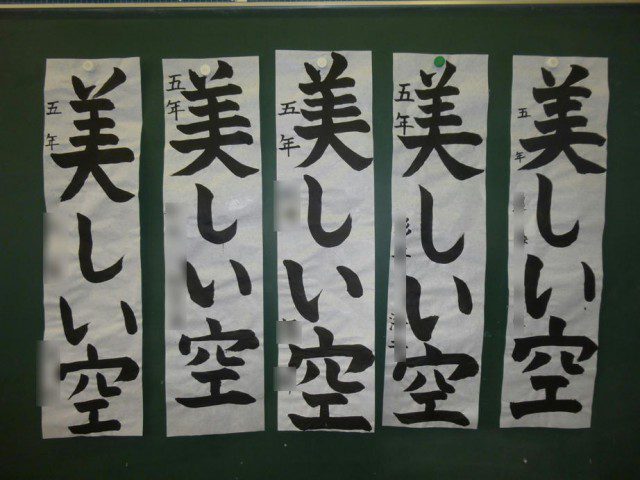 美しい空
五年
美しい空
五年
美しい空
五年
美しい空
五年
美しい空
五年